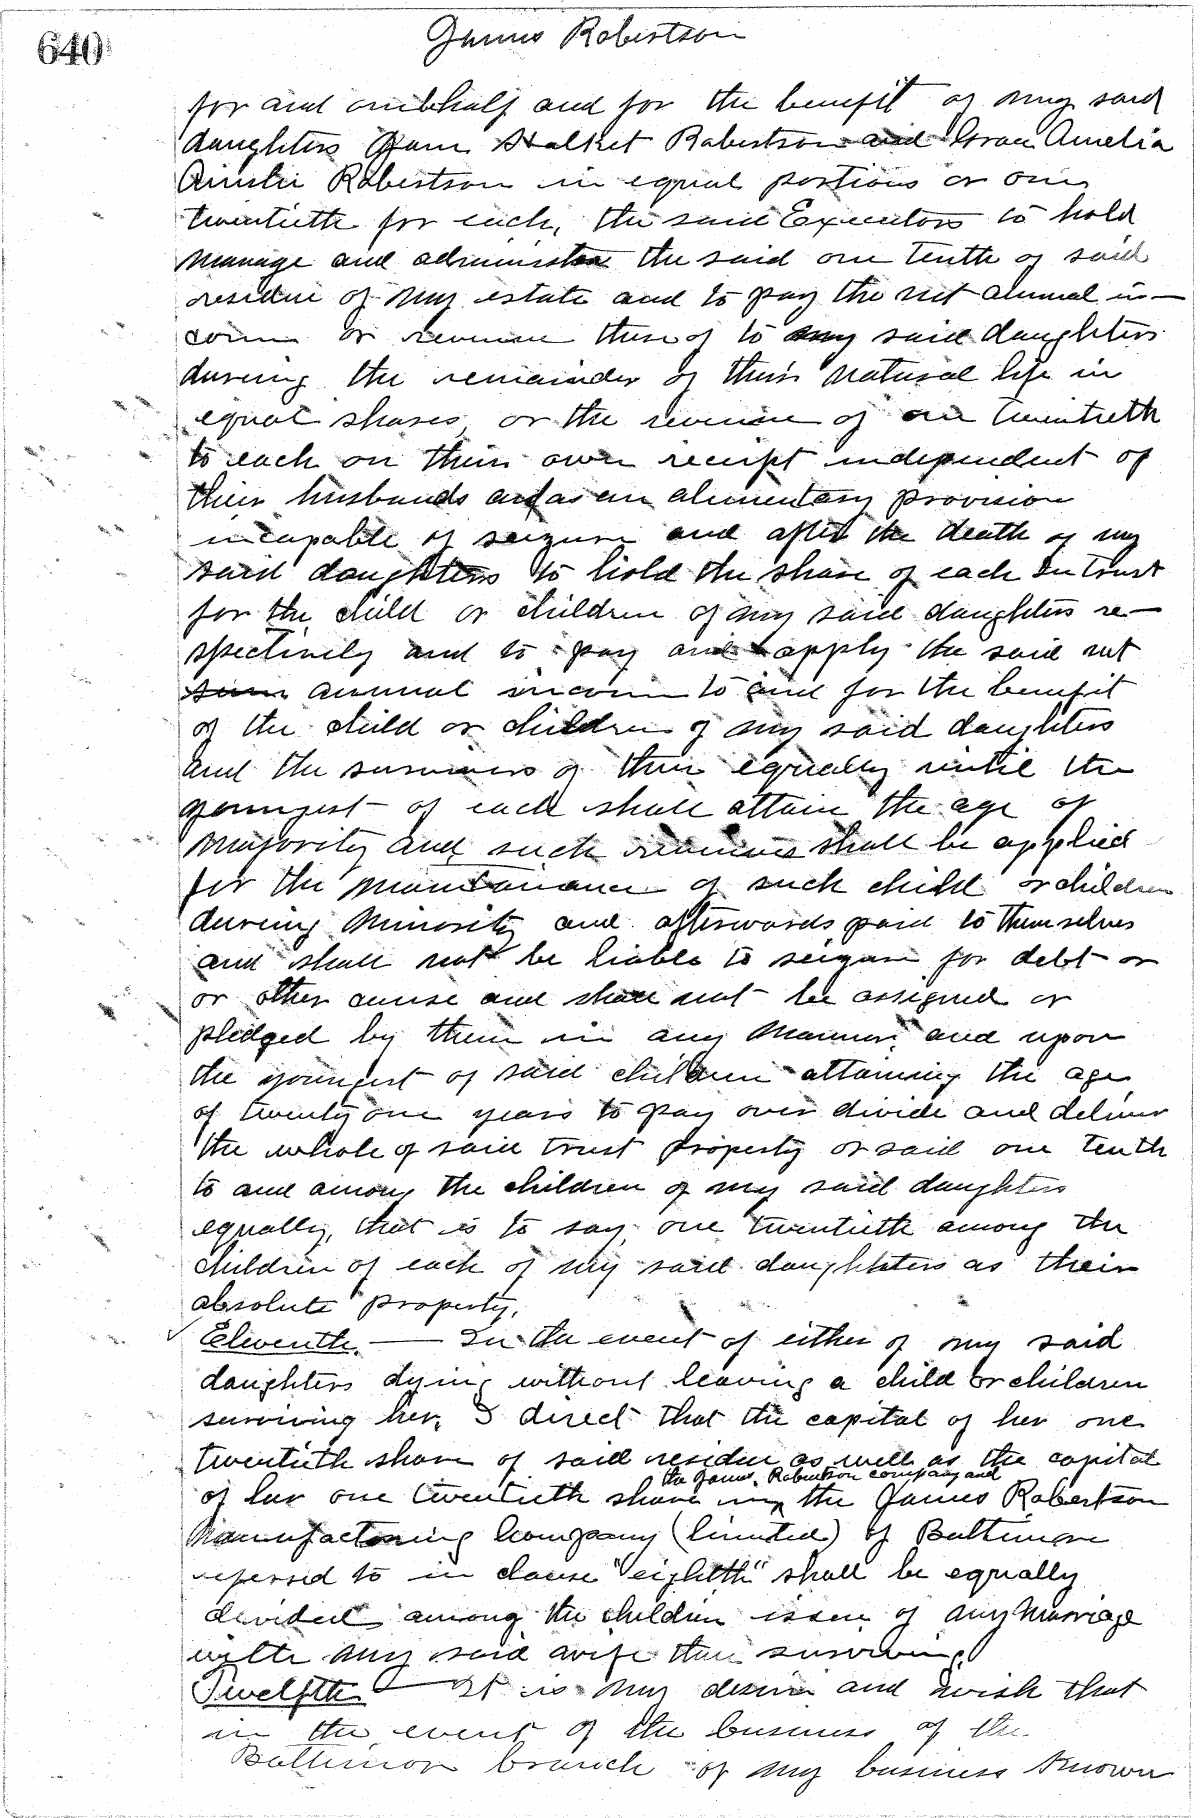 640
James Robertson
for and on behalf and for the benefit of my said
daughters Jean Halket Robertson and Grace Amelia
Ainslie Robertson in equal portions or one
twentieth for each, the said Executors to hold
manage and administer the said one tenth of said
residue of my estate and to pay the net annual in—
come or revenue thereof to my said daughters
during the remainder of their natural life in
equal shares, or the revenue of one twentieth
to each on their own receipt independent of
their husbands and as an alimentary provision
incapable of seizure and after the death of my
said daughters to hold the share of each In trust
for the child or children of my said daughters re—
spectively and to pay and apply the said net
annual income to and for the benefit
of the child or children of my said daughters
and the survivors of them equally until the
youngest of each shall attain the age of
majority and such revenues shall be applied
for the maintainance of such child or children
during minority and afterwards paid to themselves
and shall not be liable to seizure for debt or
or other cause and shall not be assigned or
pledged by them in any manner, and upon
the youngest of said children attaining the age
of twenty one years to pay over divide and deliver
the whole of said trust property or said one tenth
to and among the children of my said daughters
equally, that is to say, one twentieth among the
children of each of my said daughters as their
absolute property.
Eleventh. — In the event of either of my said
daughters dying without leaving a child or children
surviving her, I direct that the capital of her one
twentieth share of said residue as well as the capital
the James Robertson company and
of her one twentieth share in the James Robertson
Manufacturing Company (limited) of Baltimore
referred to in clause "eighth" shall be equally
divided among the children issue of my marriage
with my said wife then surviving.
Twelfth — It is my desire and wish that
in the event of the business of the
Baltimore branch of my business known